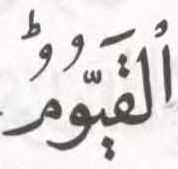 ٱلقَيُّومُؕ